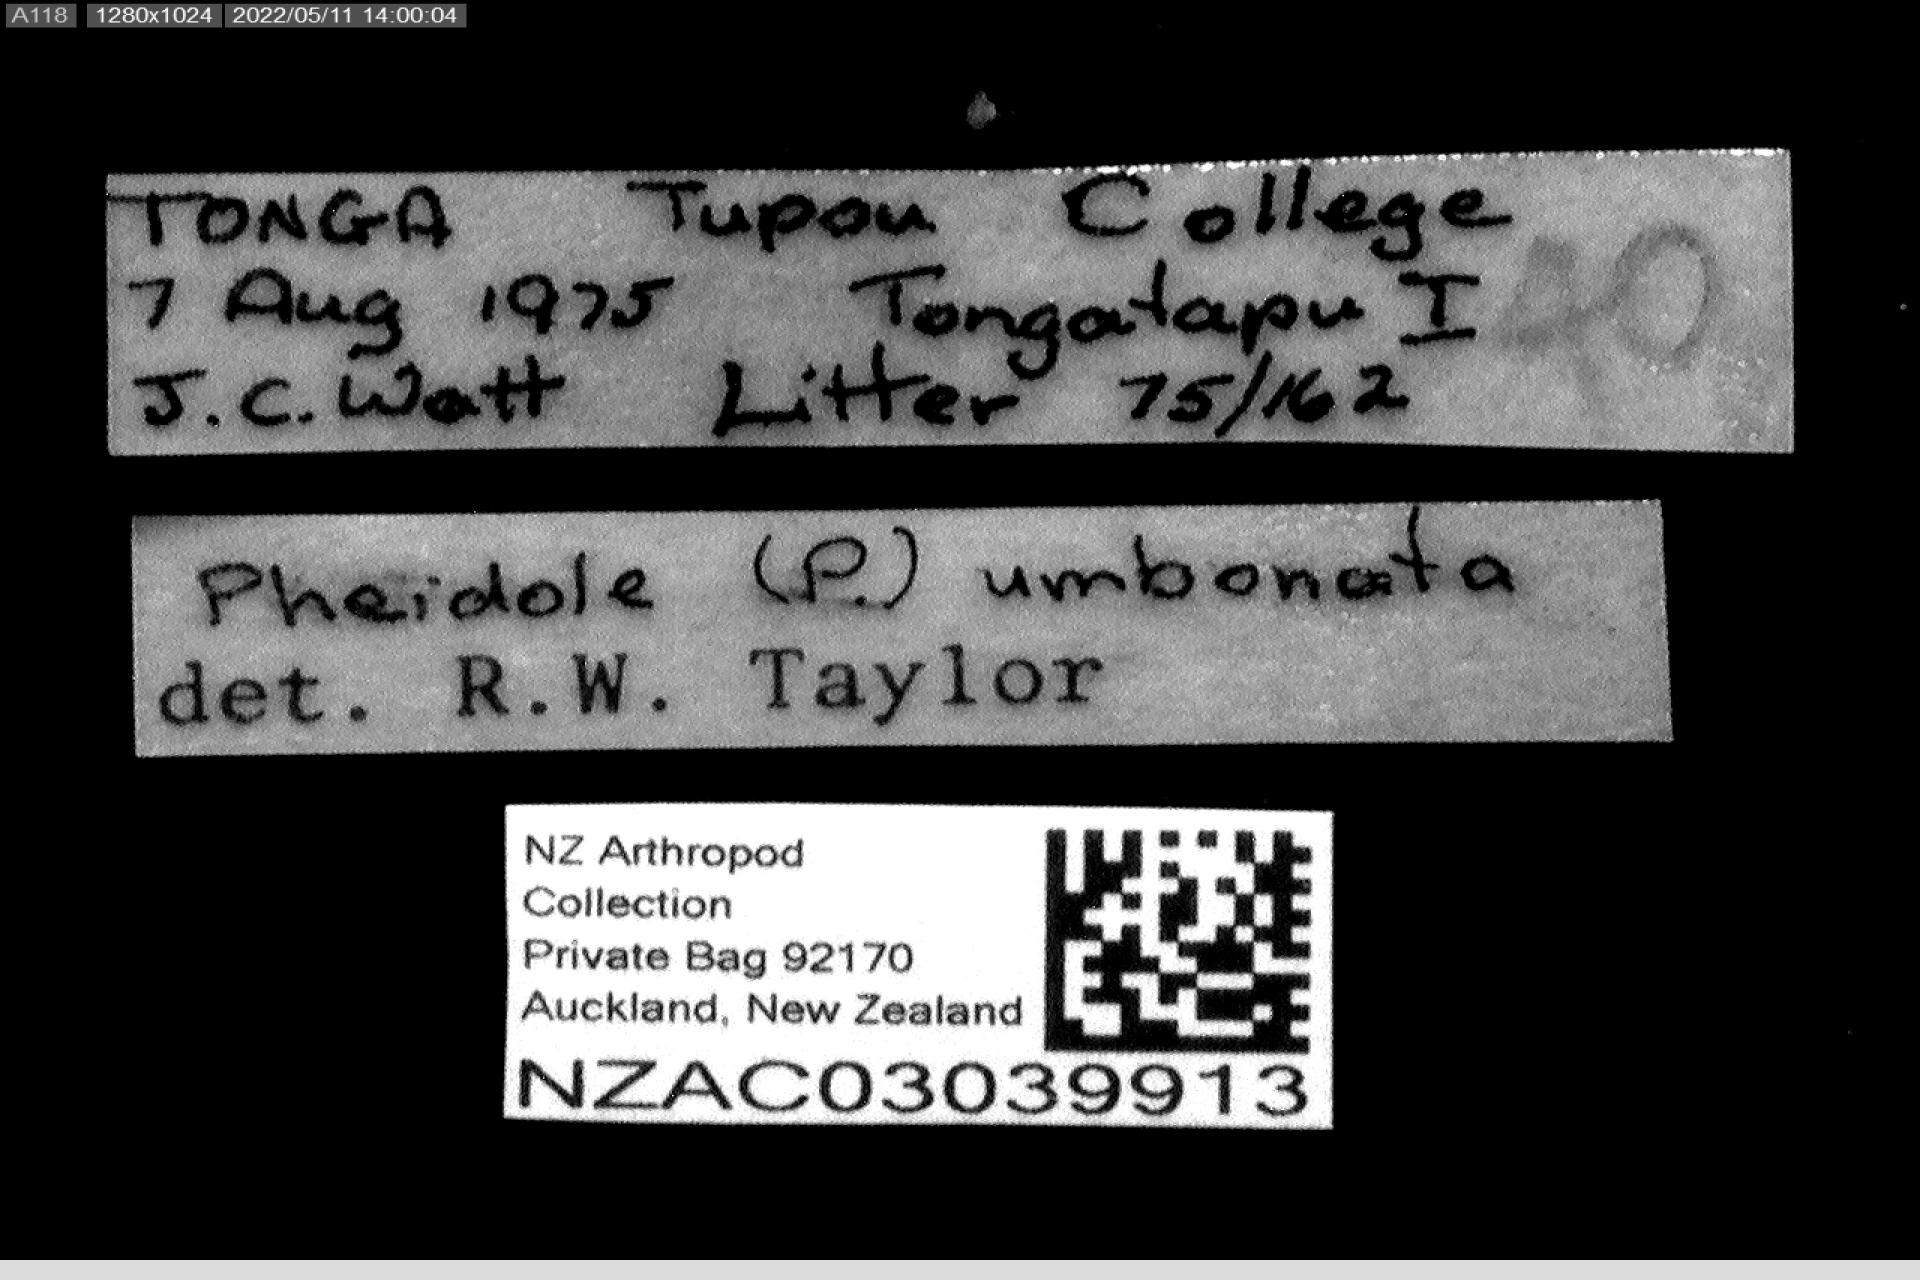 A118 1280x1024 2022/05/11 14:00:04
TONGA Tupou College
7 Aug 1975 Tongatapu I
J.C. Watt Litter 75/162
Pheidole (P.) umbonata
det. R.W. Taylor
NZ Arthropod
Collection
Private Bag 92170
Auckland, New Zealand
NZAC03039913